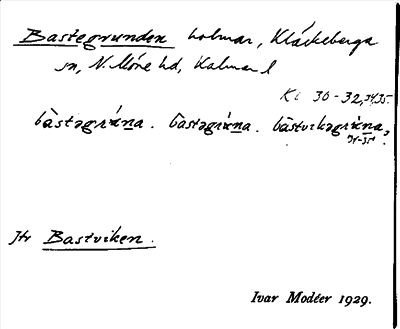 Bastegrunden holmar, Kläckeberga
sn, N. Möre hd, Kalmar l
Kl 30-32, 34, 35.
bàstəgrúna . bàstəgrúna . bàstvikəgrúna,
34-35
Jfr Bastviken.
Ivar Modéer 1929.